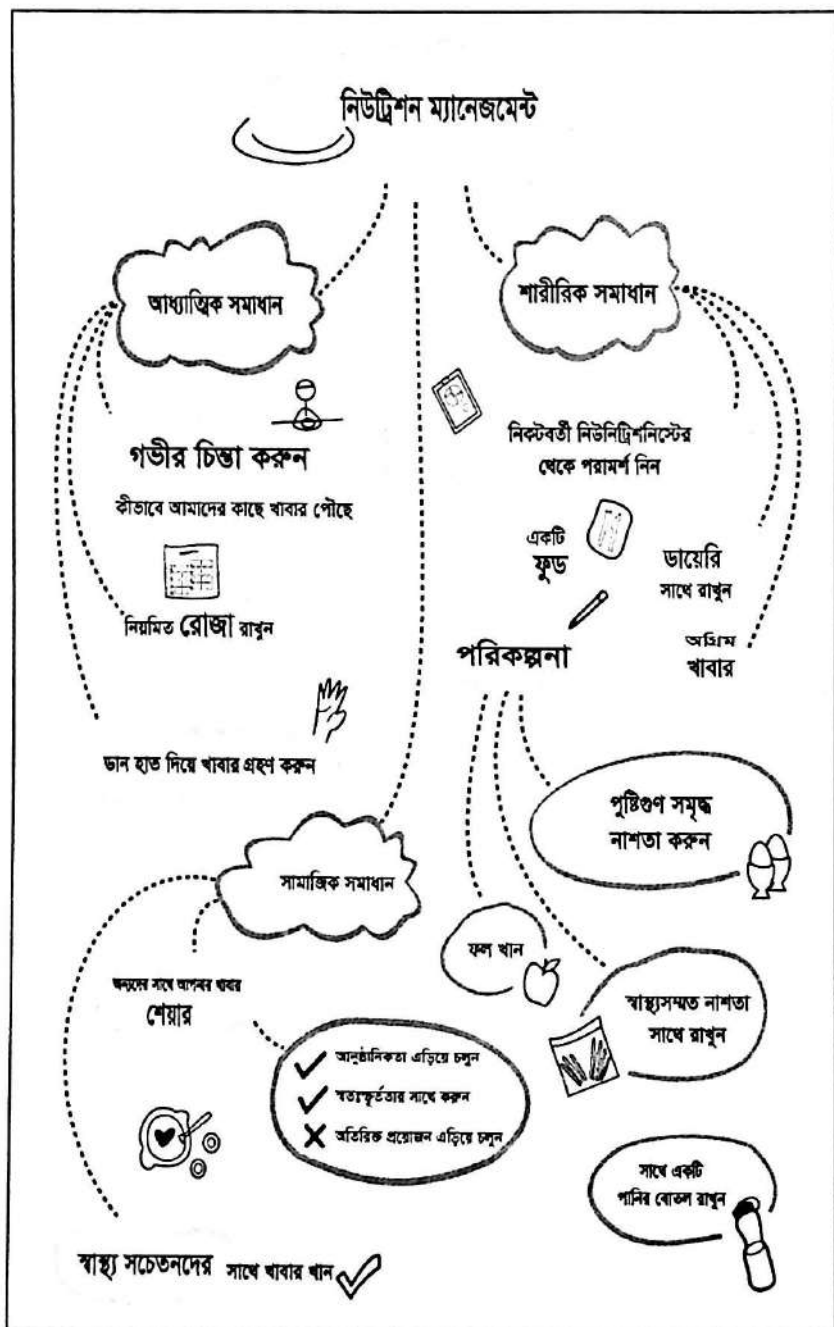 নিউট্রিশন ম্যানেজমেন্ট
আধ্যাত্মিক সমাধান
গভীর চিন্তা করুন
কীভাবে আমাদের কাছে খাবার পৌছে
নিয়মিত রোজা রাখুন
ডান হাত দিয়ে খাবার গ্রহণ করুন
শারীরিক সমাধান
নিকটবর্তী নিউনিট্রিশনিস্টের
থেকে পরামর্শ নিন
একটি
ফুড
ডায়েরি
সাথে রাখুন
অগ্রিম
খাবার
পরিকল্পনা
পুষ্টিগুণ সমৃদ্ধ
নাশতা করুন
ফল খান
স্বাস্থ্যসম্মত নাশতা
সাথে রাখুন
সাথে একটি
পানির বোতল রাখুন
সামাজিক সমাধান
অন্যদের সাথে আপনার খাবার
শেয়ার
আনুষ্ঠানিকতা এড়িয়ে চলুন
স্বতঃস্ফূর্ততার সাথে করুন
অতিরিক্ত প্রয়োজন এড়িয়ে চলুন
স্বাস্থ্য সচেতনদের সাথে খাবার খান